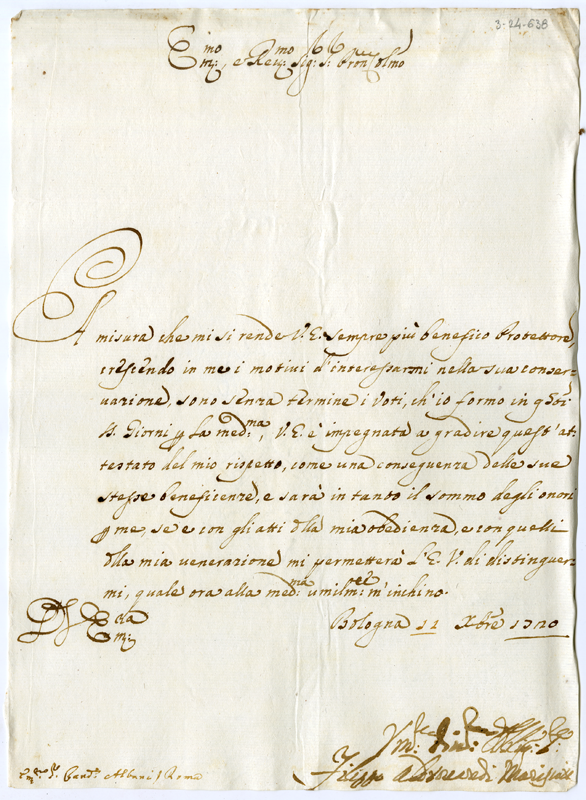 3-24-638
Em:mo, e Re:mo Sig: S: Pron: Colmo
A misura che mi si rende V. E. sempre più benefico Protettore,
crescendo in me i motivi d'interessarmi nella sua conser-
vazione, sono senza termine i Voti, ch'io formo in qsti
SS. Giorni p la med:ma, V. E. è impegnata a gradire quest'at-
testato del mio rispetto, come una conseguenza delle sue
stesse beneficenze, e sarà in tanto il sommo degli onori
p me, se e con gli atti dlla mia obedienza, e con quelli
dlla mia venerazione mi permetterà L'E. V. di distinguer-
mi, quale ora alla med:ma umilm:te m'inchino.
Bologna 11 Xbre 1720
Em:
Filippo Marsili
Sr. Card: Albani / Roma